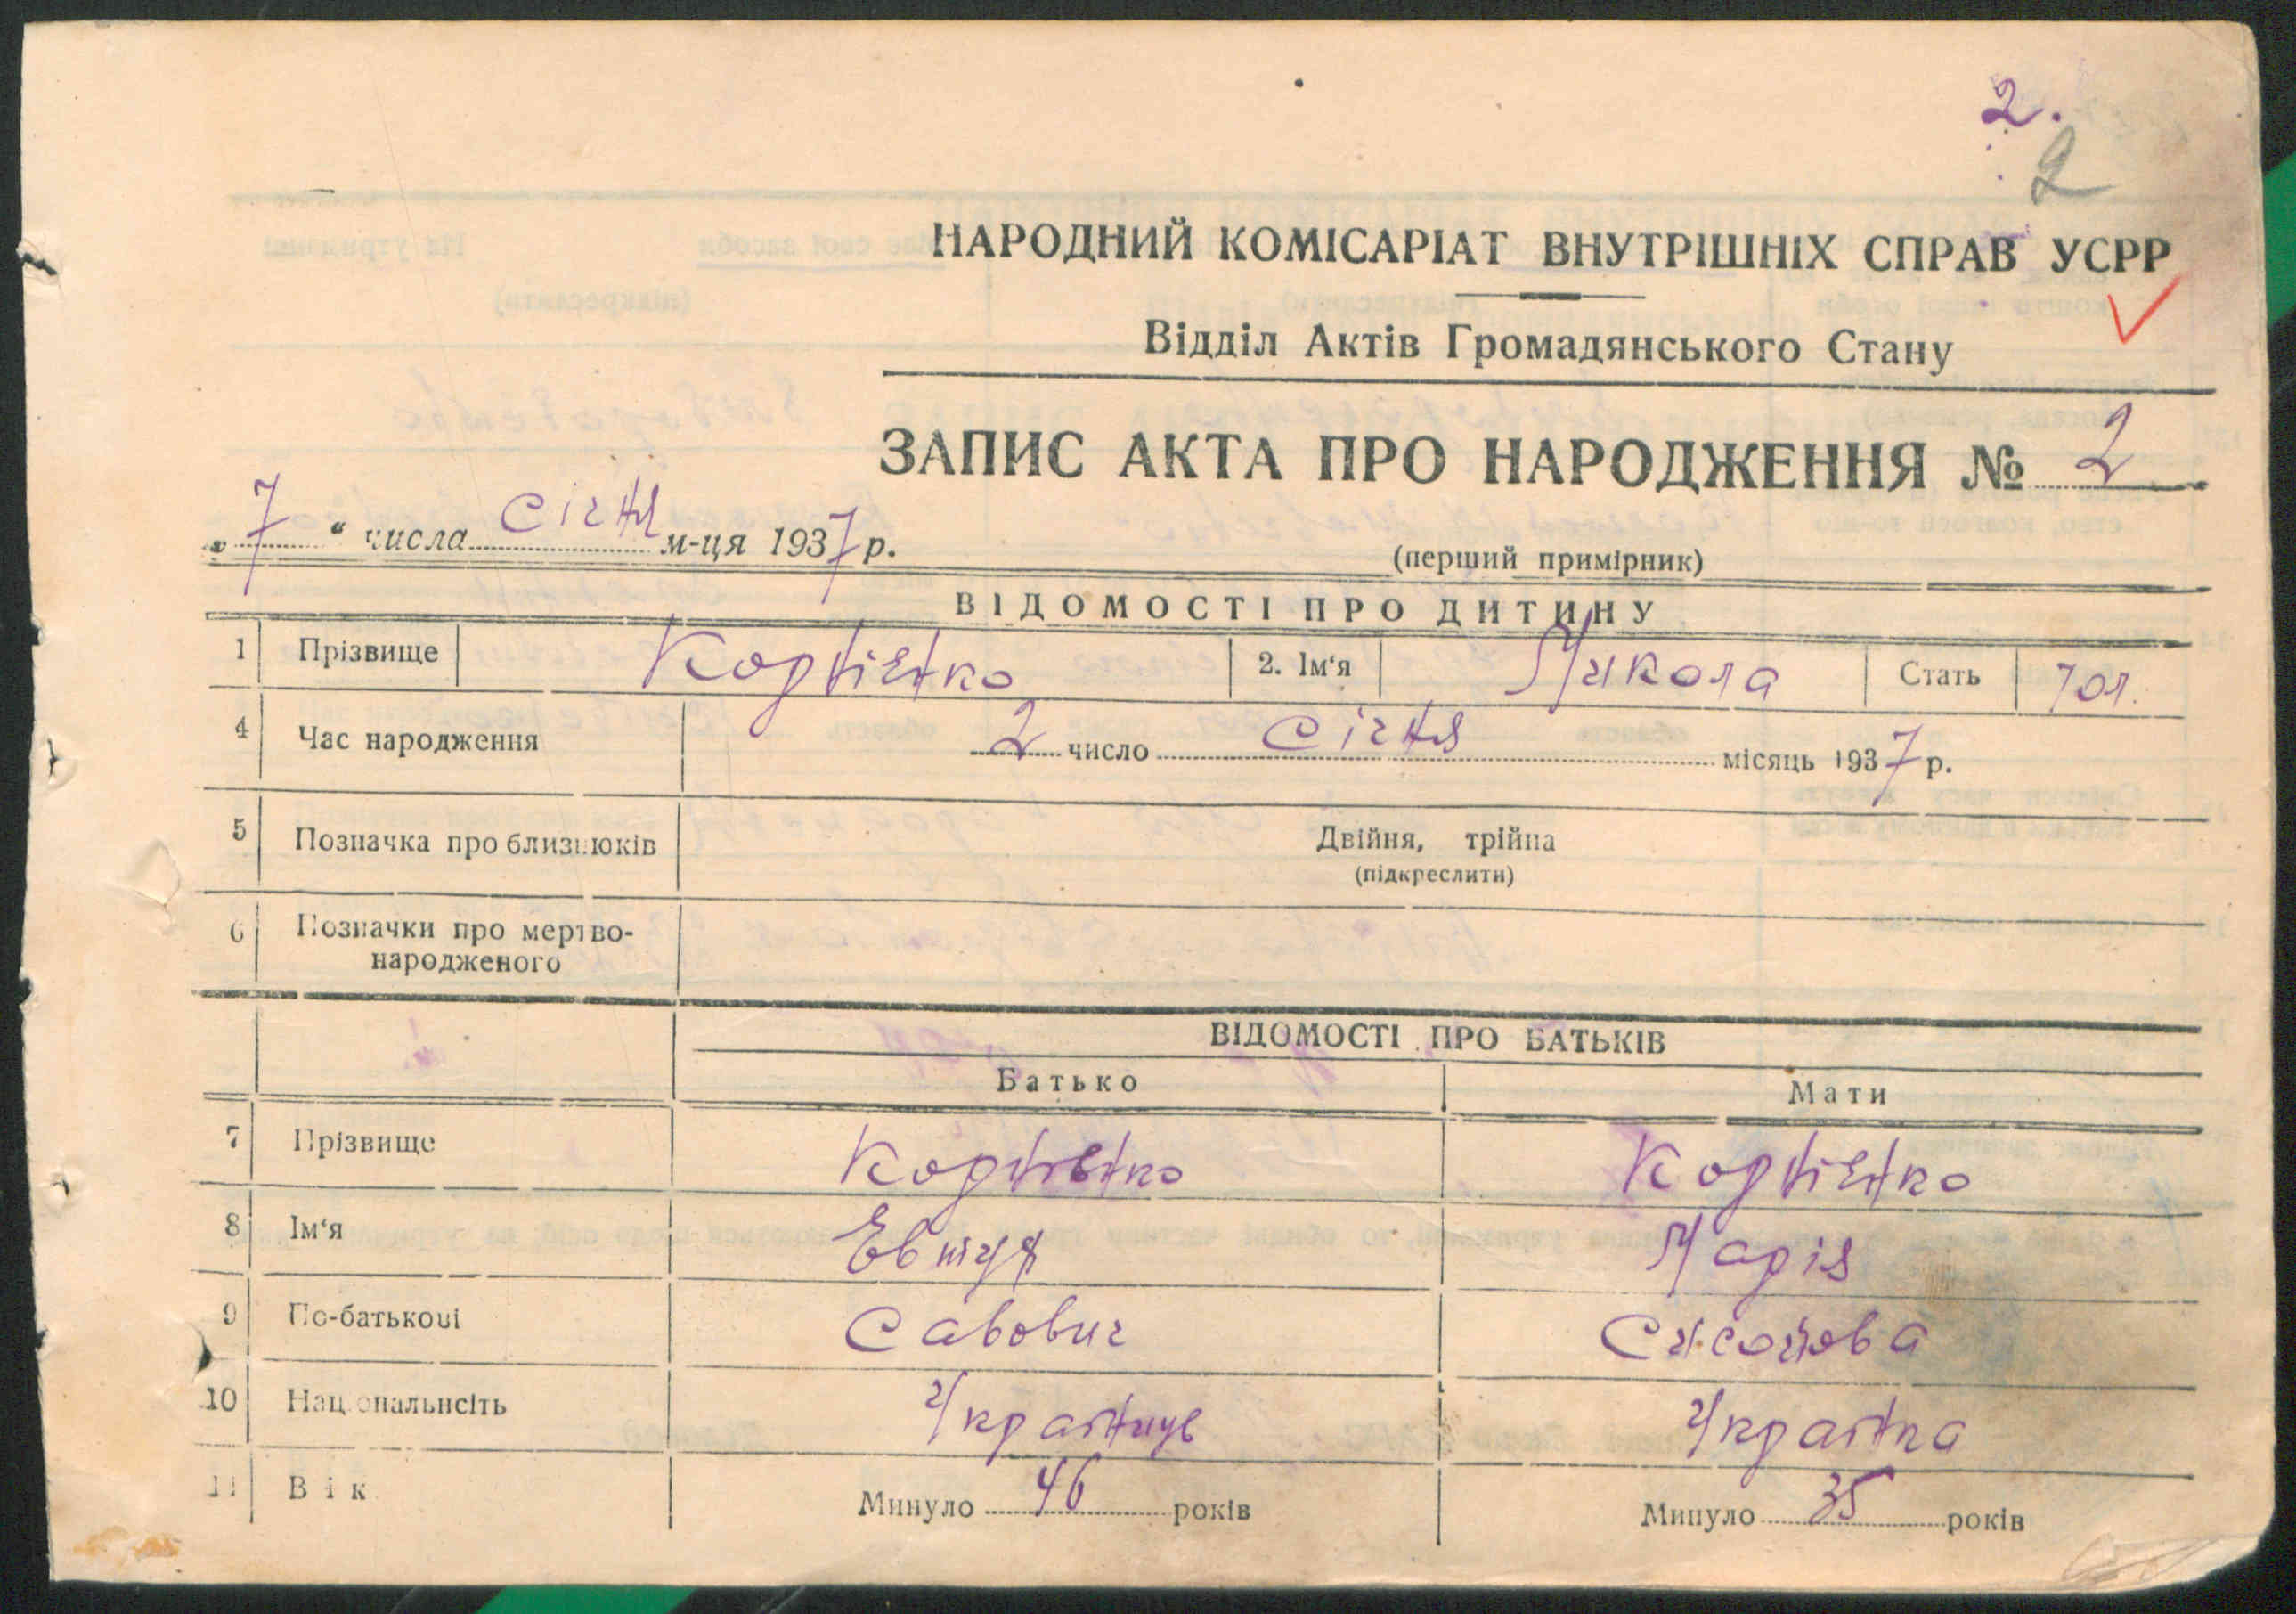 2.
2
НАРОДНИЙ КОМІСАРІАТ ВНУТРІШНІХ СПРАВ УСРР
Відділ Актів Громадянського Стану
ЗАПИС АКТА ПРО НАРОДЖЕННЯ № 2
„ 7 “ числа січня м-ця 1937 р.
(перший примірник)
ВІДОМОСТІ ПРО ДИТИНУ
1 Прізвище Корнієнко 2. Ім'я Микола Стать чол.
4 Час народження 2 число січня місяць 1937 р.
5 Позначка про близнюків Двійня, трійна
(підкреслити)
6 Позначки про мертво-
народженого
ВІДОМОСТІ ПРО БАТЬКІВ
Батько Мати
7 Прізвище Корнієнко Корнієнко
8 Ім'я Марія
9 По-батькові Савович
10 Національність Українець Українка
11 Вік Минуло 46 років Минуло 35 років